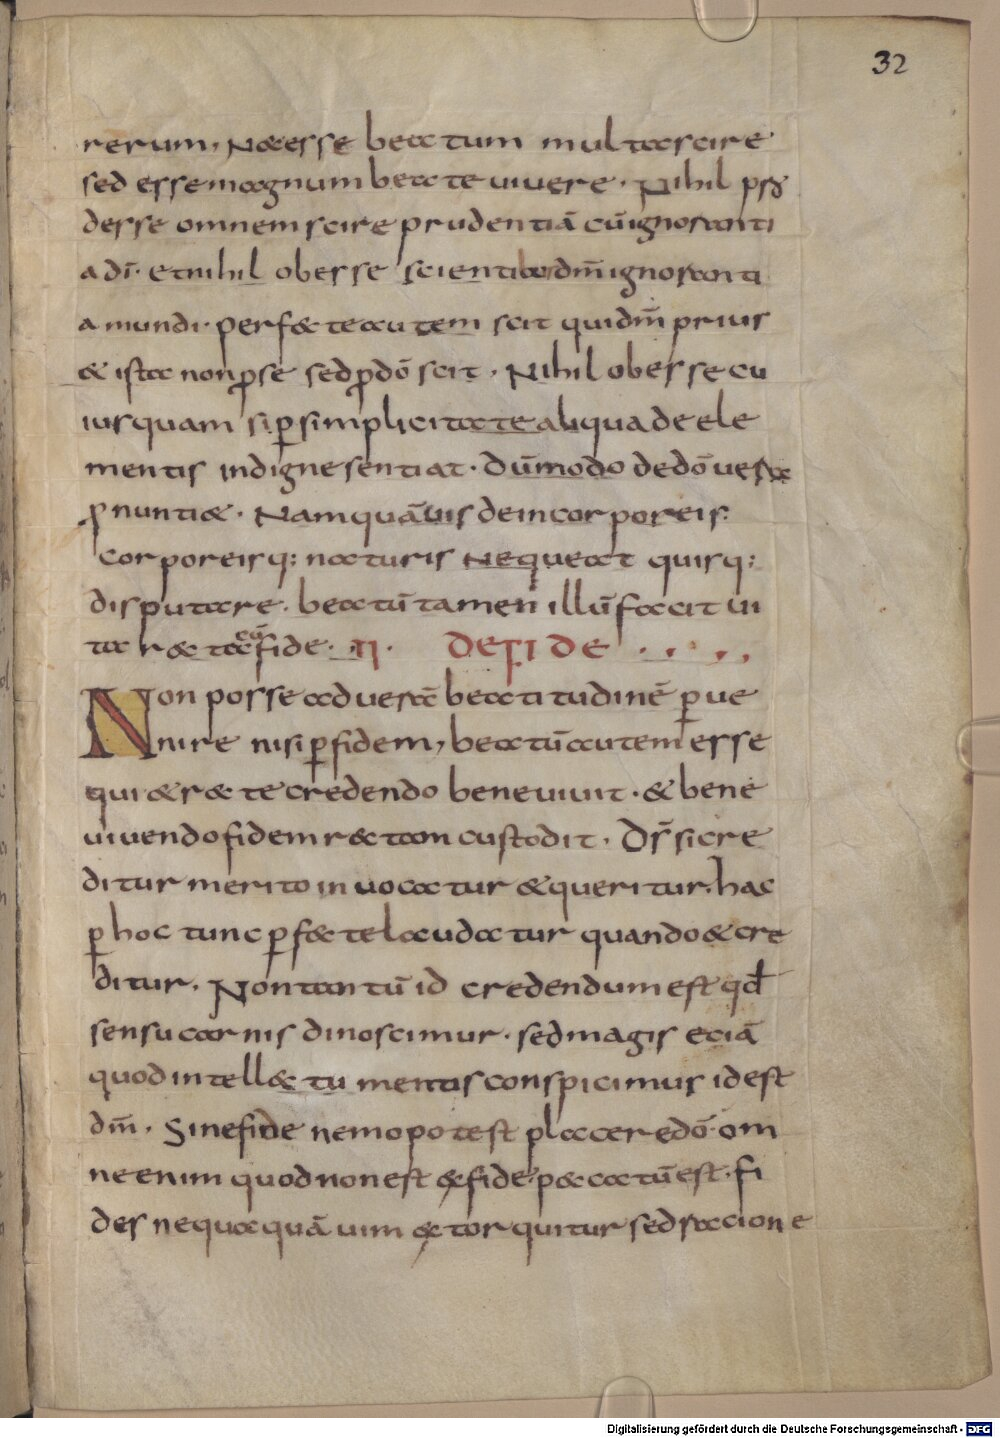 32
rerum, N&esse beatum multa scire
sed esse magnum beate uiuere. Nihil p̱ro
desse omnem scire prudentiā cū ignoranti
a dī. et nihil obesse scientibus dm̄ ignoranti
a mundi. perf&te autem scit qui dm̄ prius
& ista non ꝓ se sed ꝓ dō scit. Nihil obesse cu
iusquam si ꝑ simplicitate aliqua de ele
mentis indigne sentiat. dūmodo de dō uera
ꝓnunti&. Nam quāuis de incorporeis.
corporeisq; naturis nequeat quisq;
disputare. beatū tamen illū facit ui
ta r&ta cū fide. II. DE FIDE
Non posse ad uerā beatitudinē ꝑue
nire nisi ꝑ fidem, beatū autem esse
qui & r&te credendo bene uiuit. & bene
uiuendo fidem r&tam custodit. Ds̄ si cre
ditur merito inuocatur & queritur. hac
ꝑ hoc tunc ꝑf&te laudatur quando & cre
ditur. Non tantū id credendum est qd̄
sensu carnis dinoscimur. sed magis eciā
quod intell&tu mentis conspicimus id est
dm̄. Sine fide nemo potest placare dō. om
ne enim quod non est & fide. p&catū est. fi
des nequaquā uim &torquitur sed racione
Digitalisierung gefördert durch die Deutsche Forschungsgemeinschaft - DFG